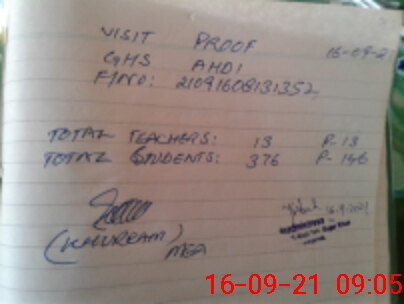 VISIT PROOF 16-09-2
GHS AHDI
F/NO: 21091608131352,
TOTAL TEACHERS: 13 P-13
TOTAL STUDENTS: 376 P-146
(KHURRAM)
MEA
16.9.2021
16-09-21 09:05